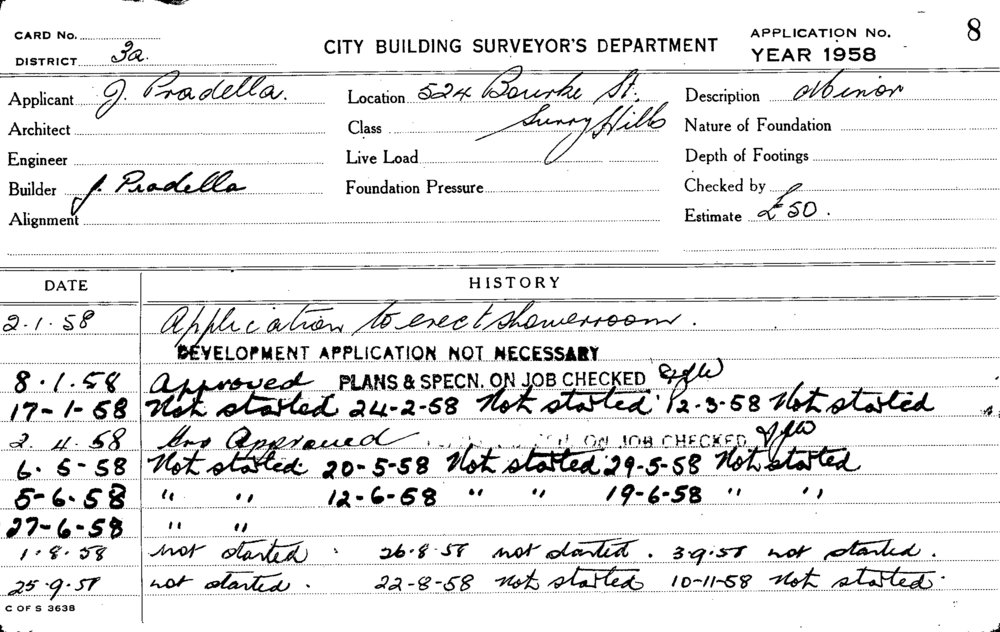 CARD No. APPLICATION No. 8
DISTRICT 3a. CITY BUILDING SURVEYOR'S DEPARTMENT YEAR 1958
Applicant J. Pradella. Location 524 Bourke St. Description Minor
Architect Class Surry Hills Nature of Foundation
Engineer Live Load Depth of Footings
Builder J. Pradella Foundation Pressure Checked by
Alignment Estimate £50.
DATE HISTORY
2.1.58 Application to erect showerroom.
DEVELOPMENT APPLICATION NOT NECESSARY
8.1.58 Approved PLANS & SPECN. ON JOB CHECKED
17-1-58 Not started 24-2-58 Not started 12-3-58 Not started
2.4.58 Approved ON JOB CHECKED
6.5-58 Not started 20-5-58 Not started 29-5-58 Not started
5-6.58 " " 12-6-58 " " 19-6-58 " "
27-6-58 " "
1.8.58 not started. 26.8.58 not started. 3.9.58 not started.
25.9.58 not started. 22-8-58 Not started 10-11-58 Not started.
C OF S 3638